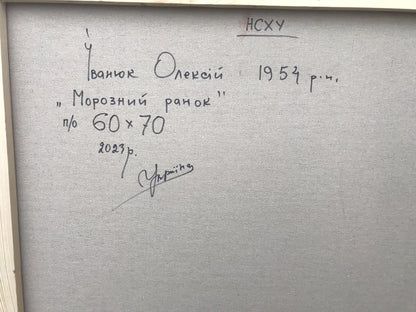 НСХУ
Іванюк Олексій 1954 р.н.
„Морозний ранок"
п/о 60 х 70
2023 р.
Україна